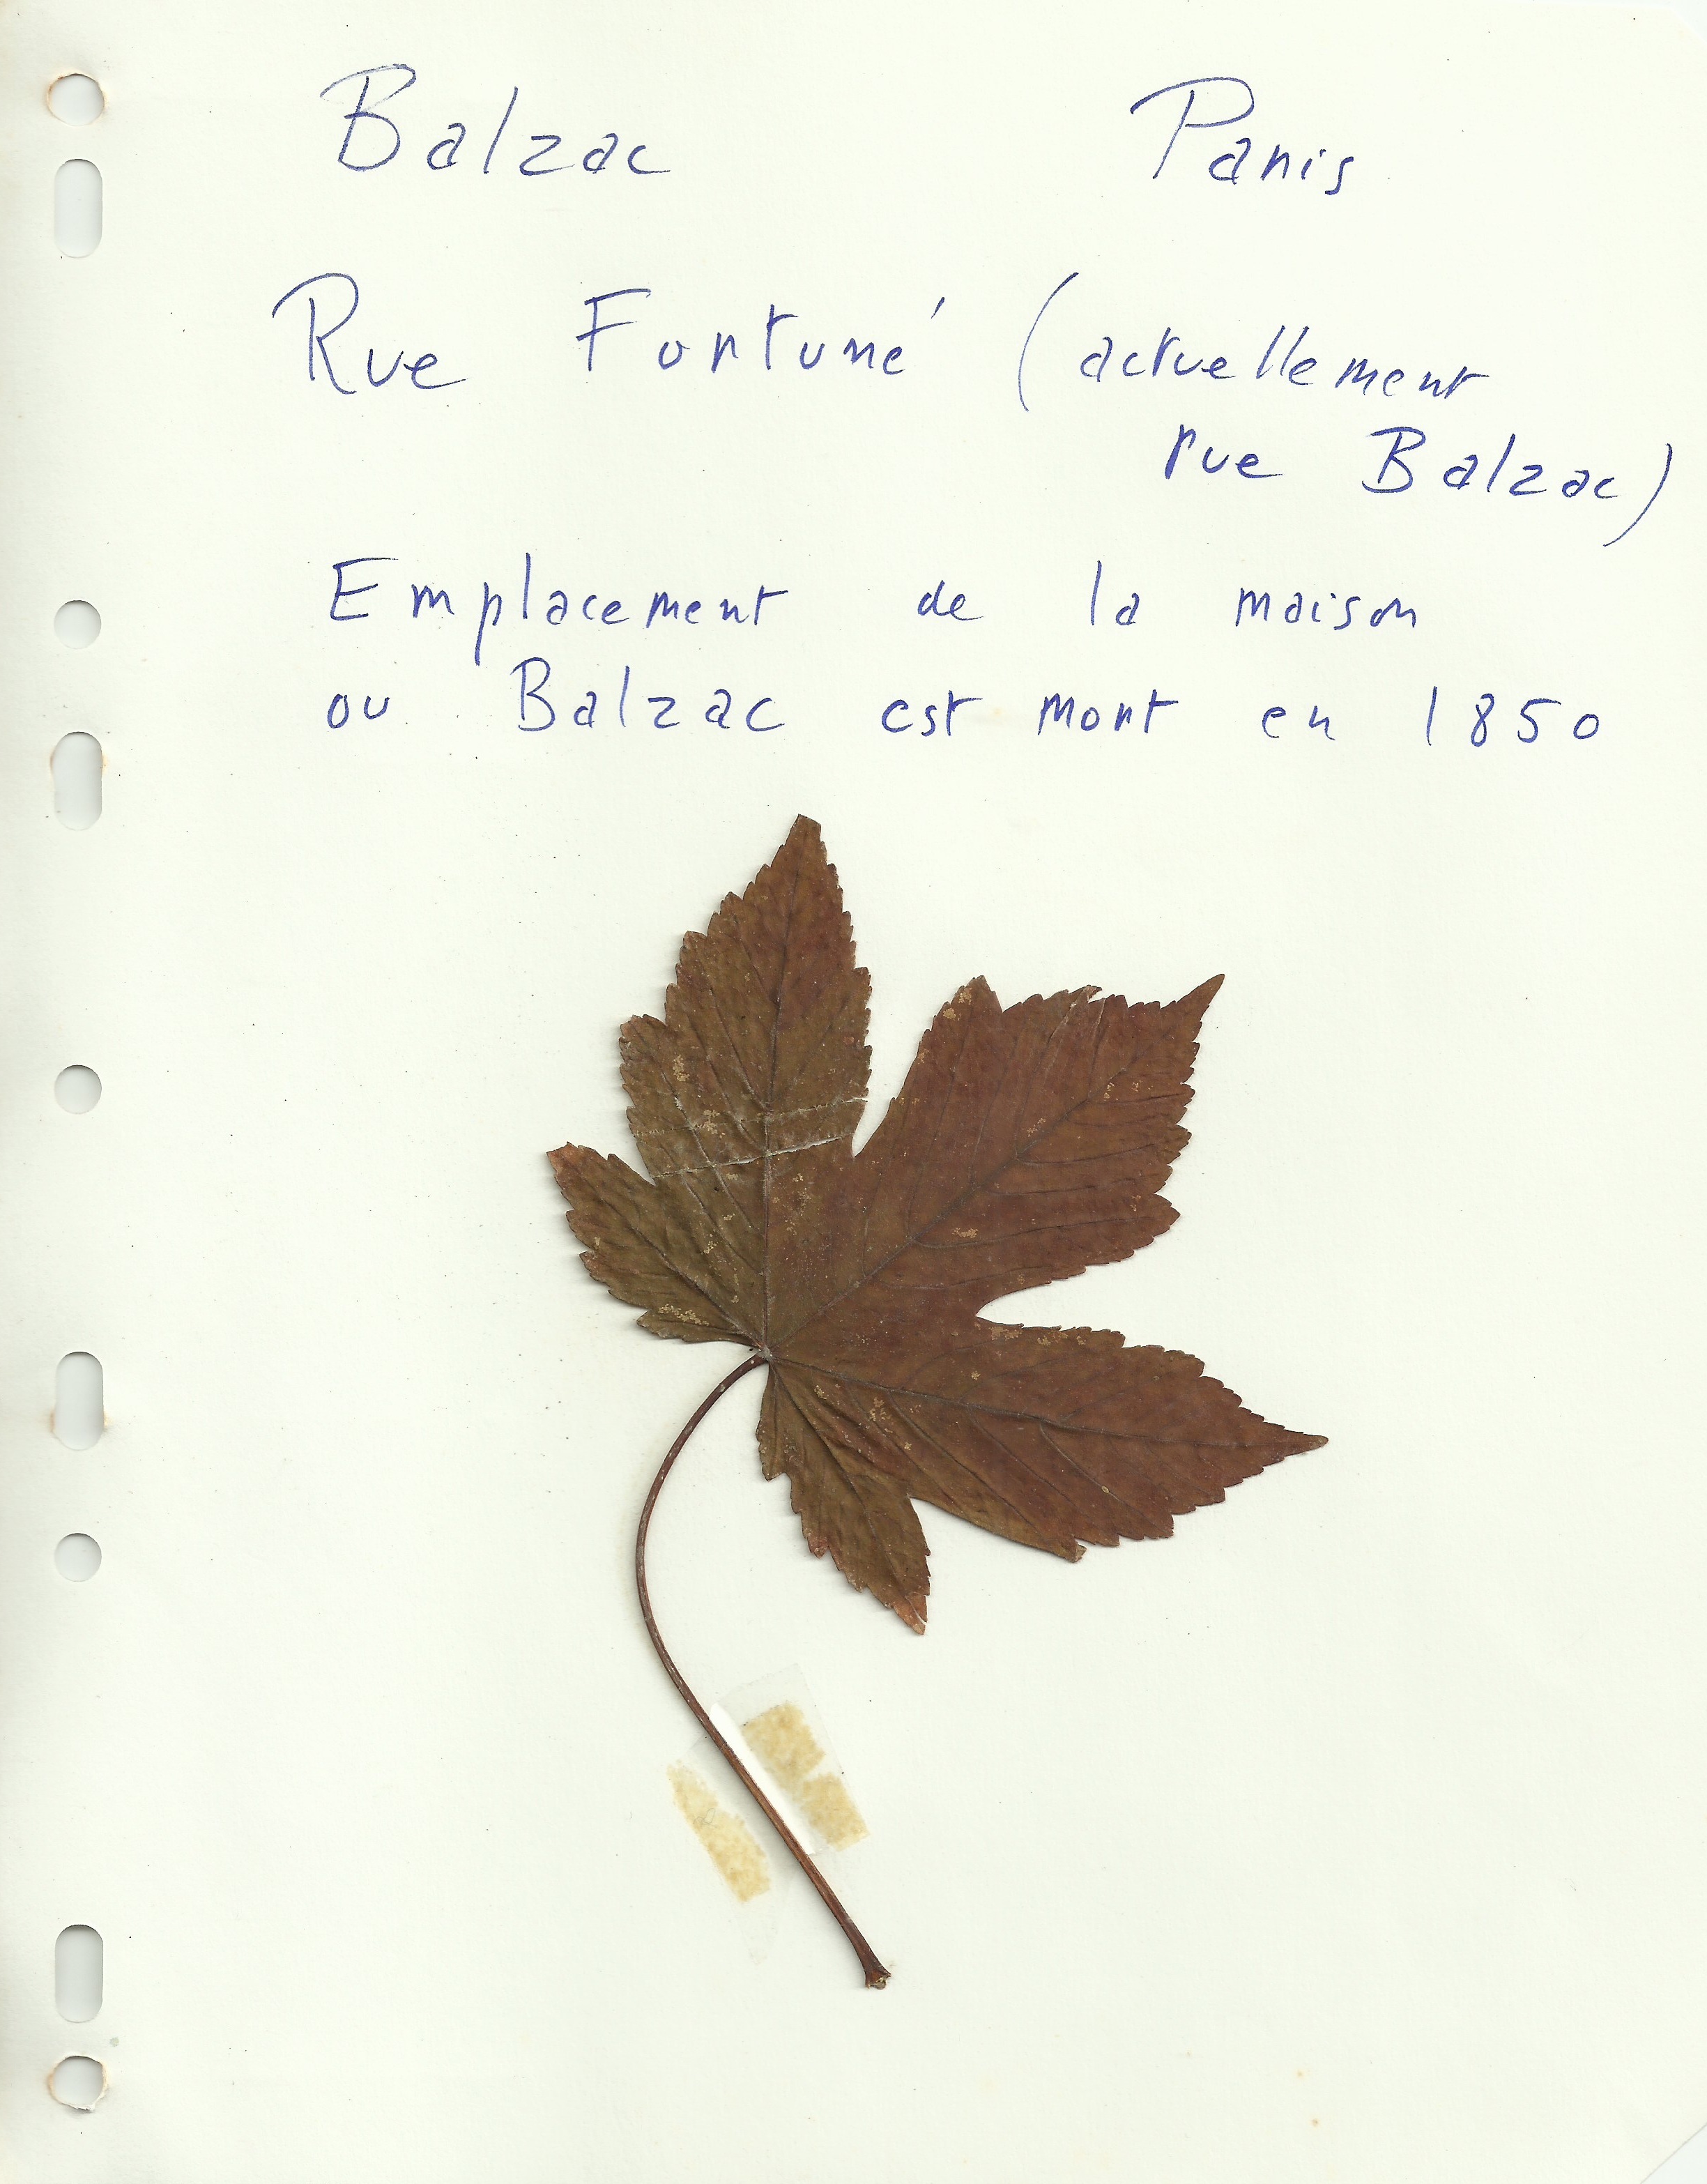 Balzac Paris
Rue Fortuné (actuellement
rue Balzac)
Emplacement de la maison
ou Balzac est mort en 1850